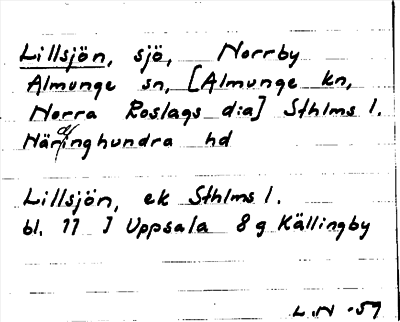 Lillsjön, sjö, Norrby
Almunge sn, [Almunge kn,
Norra Roslags d:a] Sthlms l.
Närdinghundra hd
Lillsjön, ek Sthlms l.
bl. 77 I Uppsala 8 g Källingby
L.N -57